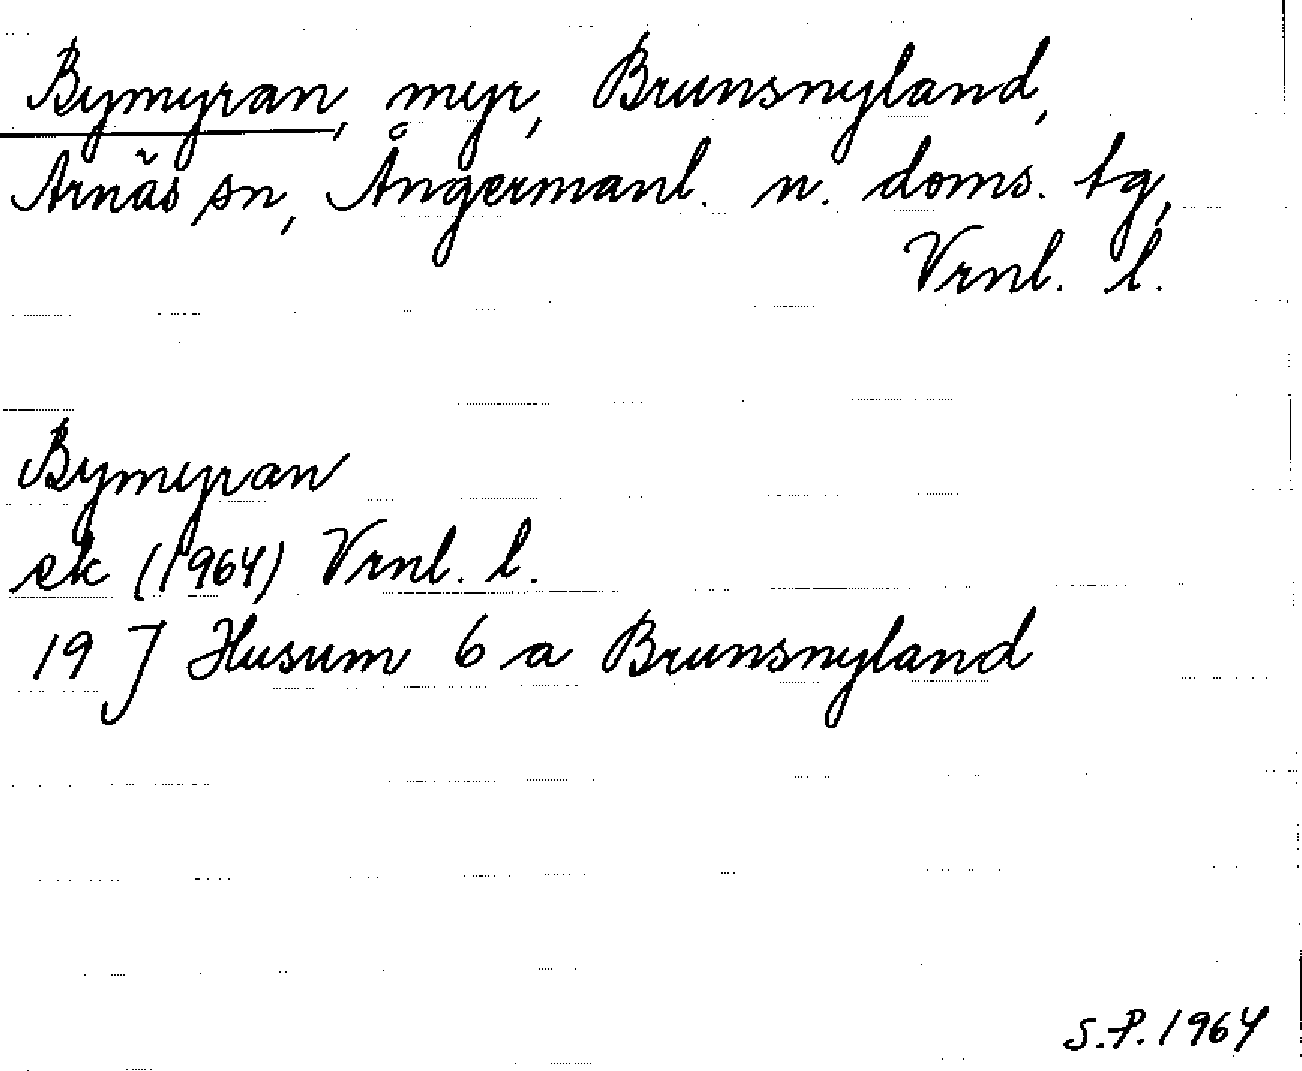 Bymyran, myr, Brunsnyland,
Arnäs sn, Ångermanl. n. doms. tg,
Vrnl. l.
Bymyran
ek (1964) Vrnl. l.
19 J Husum 6 a Brunsnyland
S.P. 1964